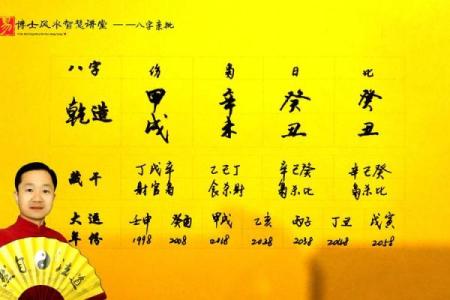 易 博士风水智慧讲堂 ——八字亲批
八字 伤 枭 日 比
乾造 甲戌 辛未 癸丑 癸丑
藏干 丁戊辛 乙己丁 辛己癸 辛己癸
财官枭 食杀财 枭杀比 枭杀比
大运 壬申 癸酉 甲戌 乙亥 丙子 丁丑 戊寅
年份 1998 2008 2018 2028 2038 2048 2058
然自法道